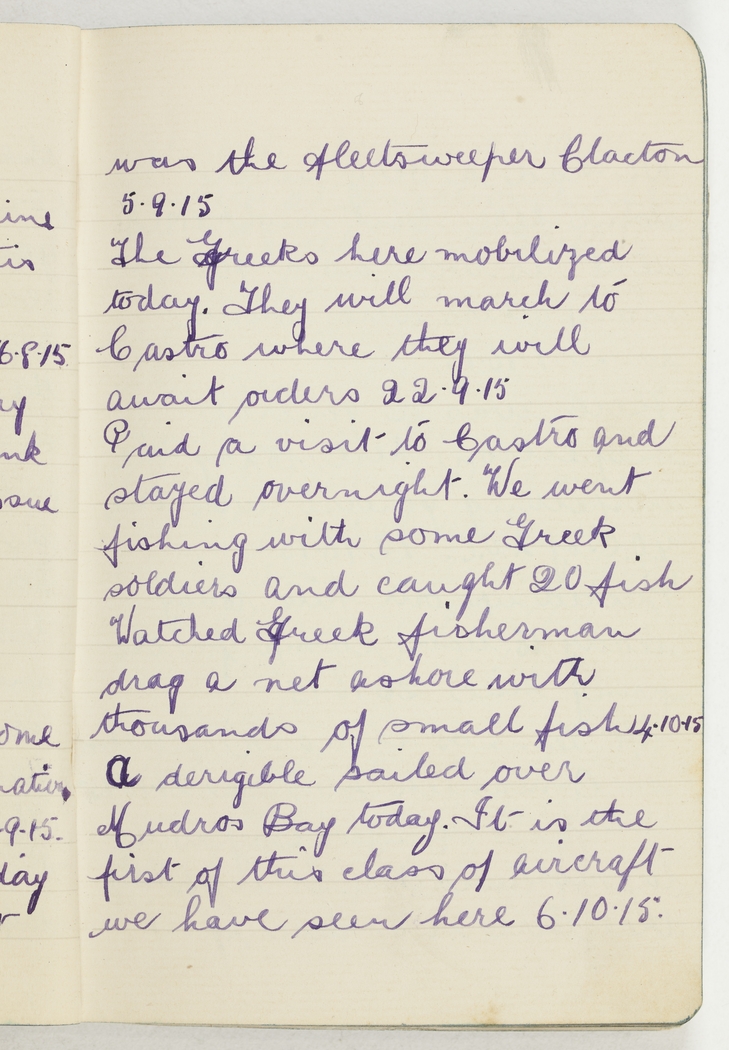 was the fleetsweeper Clacton
5.9.15
The Greeks here mobilized
today. They will march to
Castro where they will
await orders 22.9.15
Paid a visit to Castro and
stayed overnight. We went
fishing with some Greek
soldiers and caught 20 fish
Watched Greek fisherman
drag a net ashore with
thousands of small fish 4.10.15
A derigible sailed over
Mudros Bay today. It is the
first of this class of aircraft
we have seen here 6.10.15.